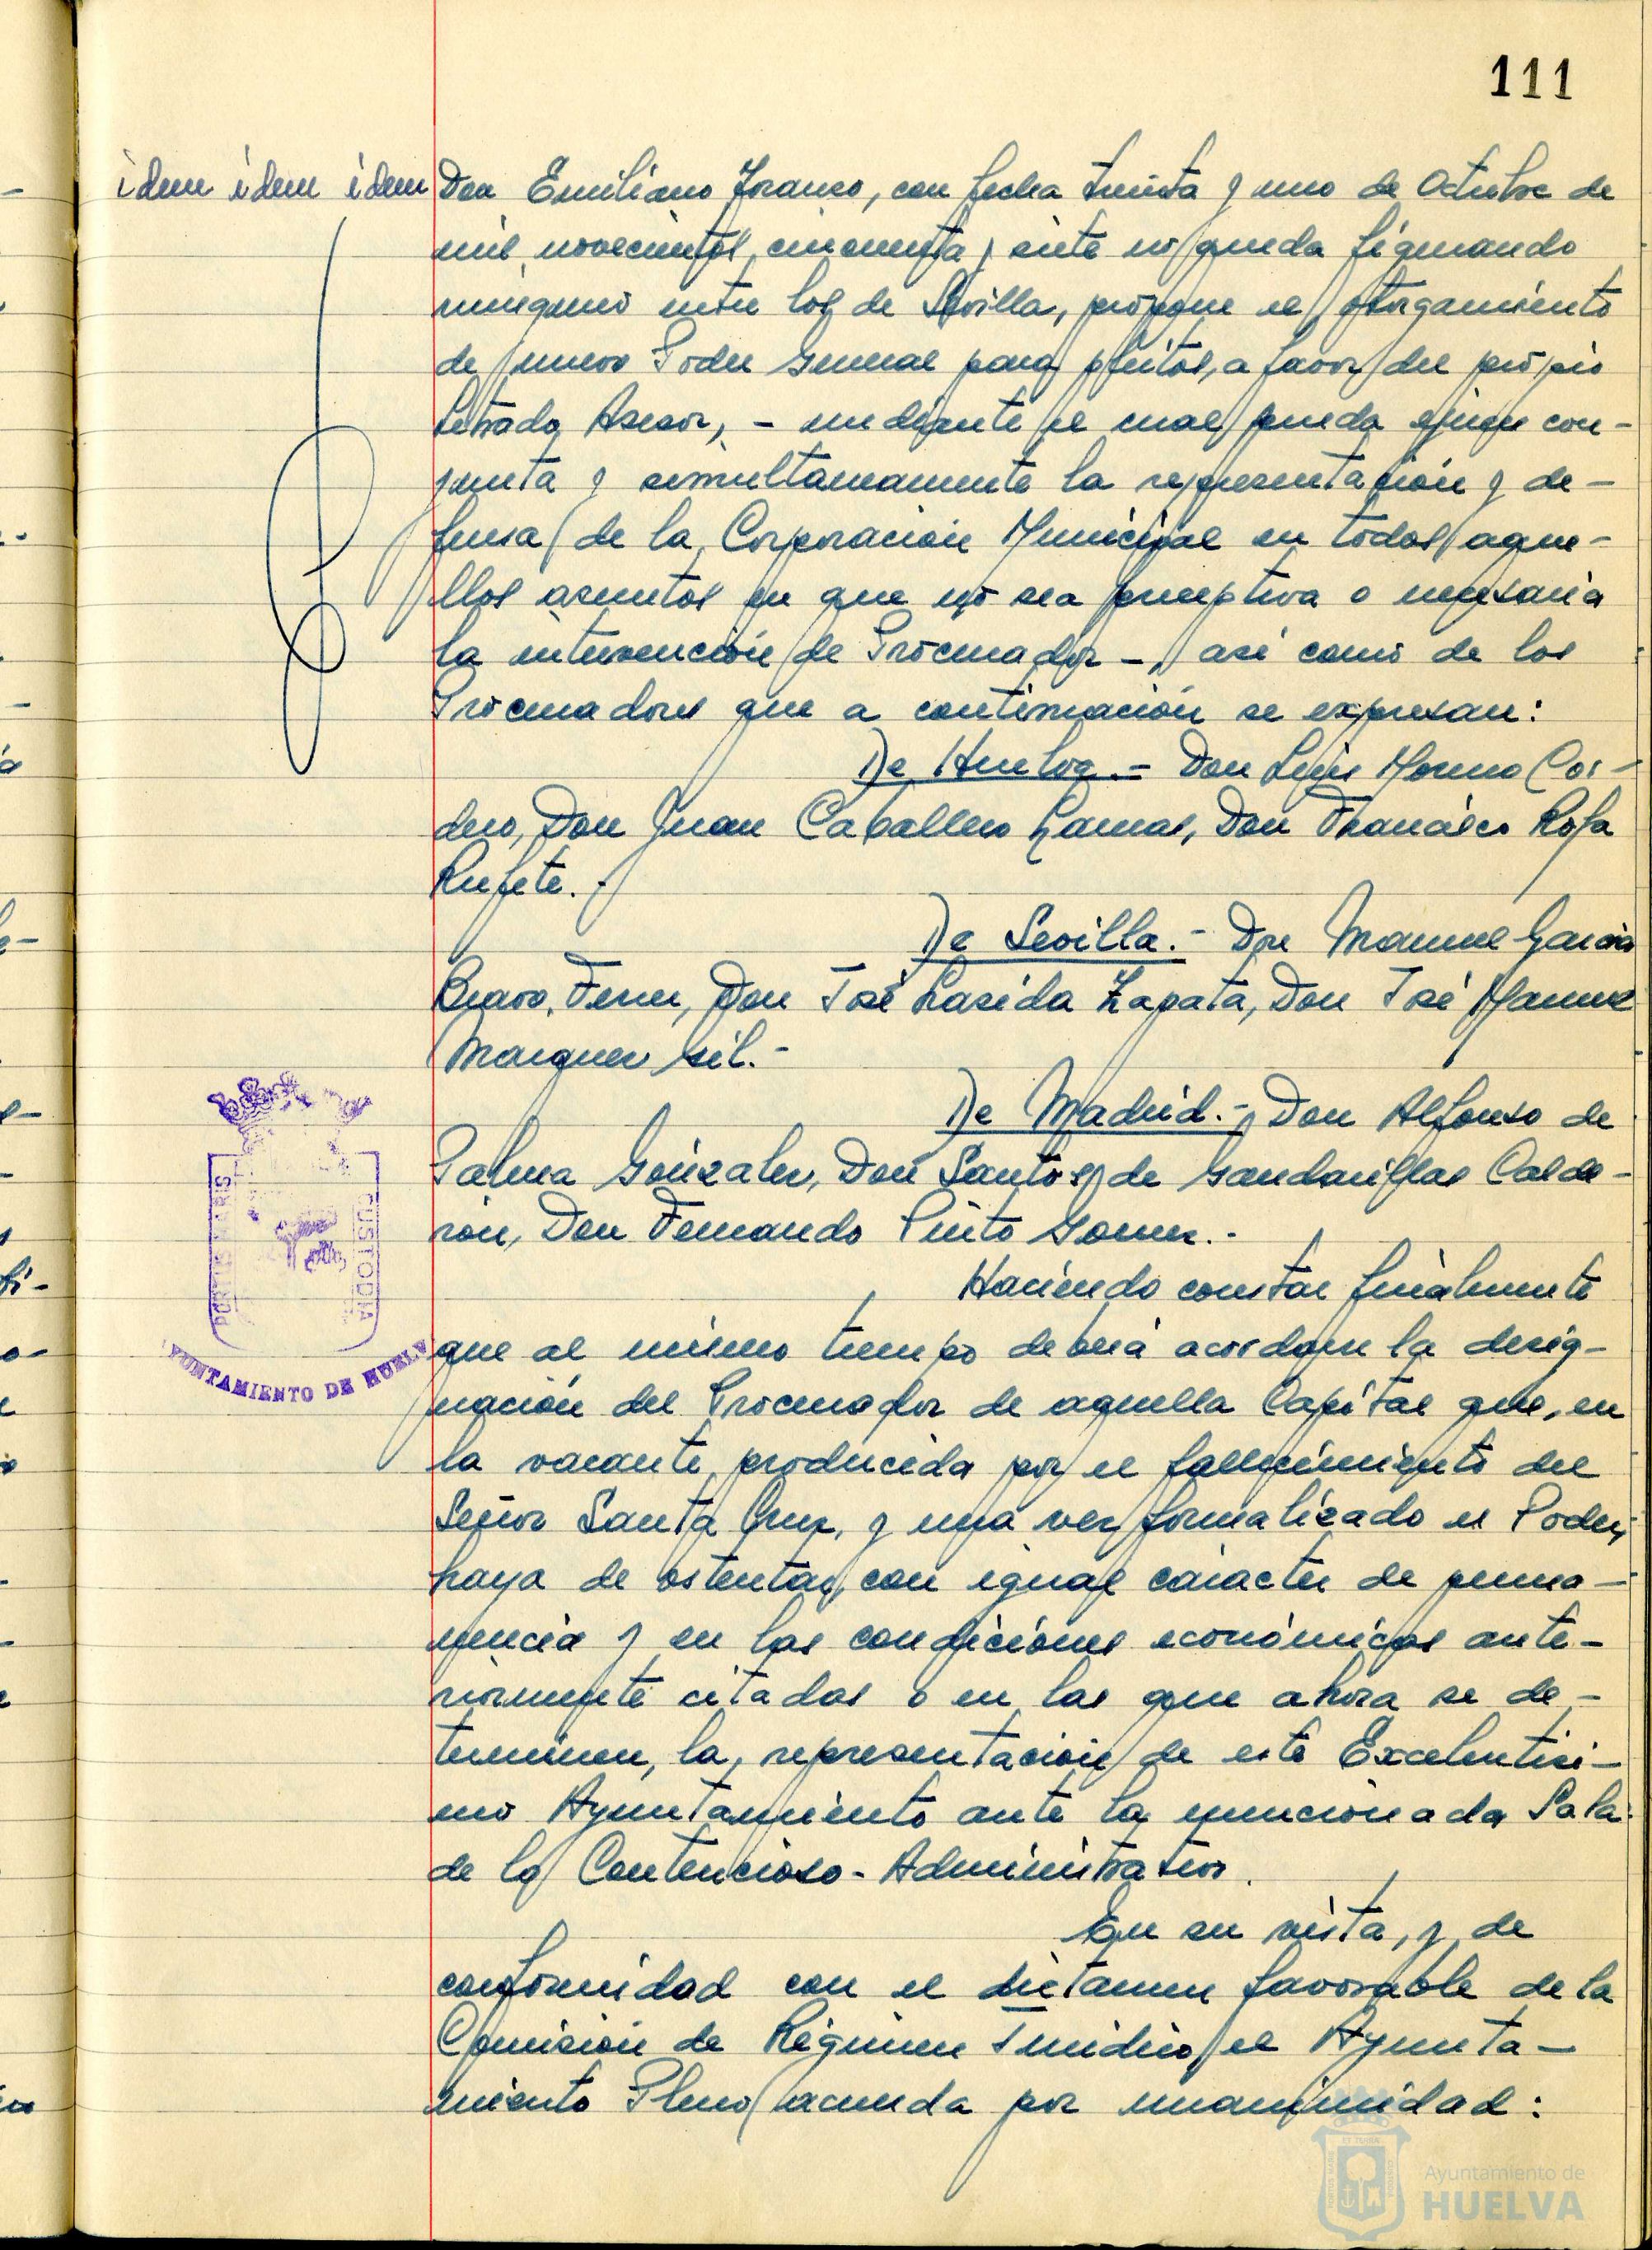 111
idem idem idem
Don Emiliano Franco, con fecha treinta y uno de Octubre de
mil novecientos cincuenta y siete no queda figurando
ninguno entre los de Sevilla, propone el otorgamiento
de nuevo Poder General para pleitos, a favor del propio
Letrado Asesor, - mediante el cual pueda ejercer con-
junta y simultaneamente la representación y de-
fensa de la Corporación Municipal en todos aque-
llos asuntos en que no sea preceptiva o necesaria
la intervención de Procurador -, así como de los
Procuradores que a continuación se expresan:
De Huelva.- Don Luis Moreno Cor-
dero, Don Juan Caballero Lamas, Don Francisco Rofa
Rufete.-
De Sevilla.- Don Manuel Garcia
Bravo Ferrer, Don José Lasida Zapata, Don José Manuel
Marquez Gil.-
De Madrid.- Don Alfonso de
Palma Gonzalez, Don Santos de Gandarillas Calde-
ron, Don Fernando Pinto Gomez.-
Haciendo constar finalmente
que al mismo tiempo deberá acordarse la desig-
nación del Procurador de aquella Capital que, en
la vacante producida por el fallecimiento del
Señor Santa Cruz, y una vez formalizado el Poder,
haya de ostentar, con igual caracter de perma-
nencia y en las condiciones económicas ante-
riormente citadas o en las que ahora se de-
terminen, la representación de este Excelentísi-
mo Ayuntamiento ante la mencionada Sala
de lo Contencioso-Administrativo.
En su vista, y de
conformidad con el dictamen favorable de la
Comision de Régimen Juridico, el Ayunta-
miento Pleno acuerda por unanimidad:
PORTUS MARIS
CUSTODIA
AYUNTAMIENTO DE HUELVA
Ayuntamiento de
HUELVA